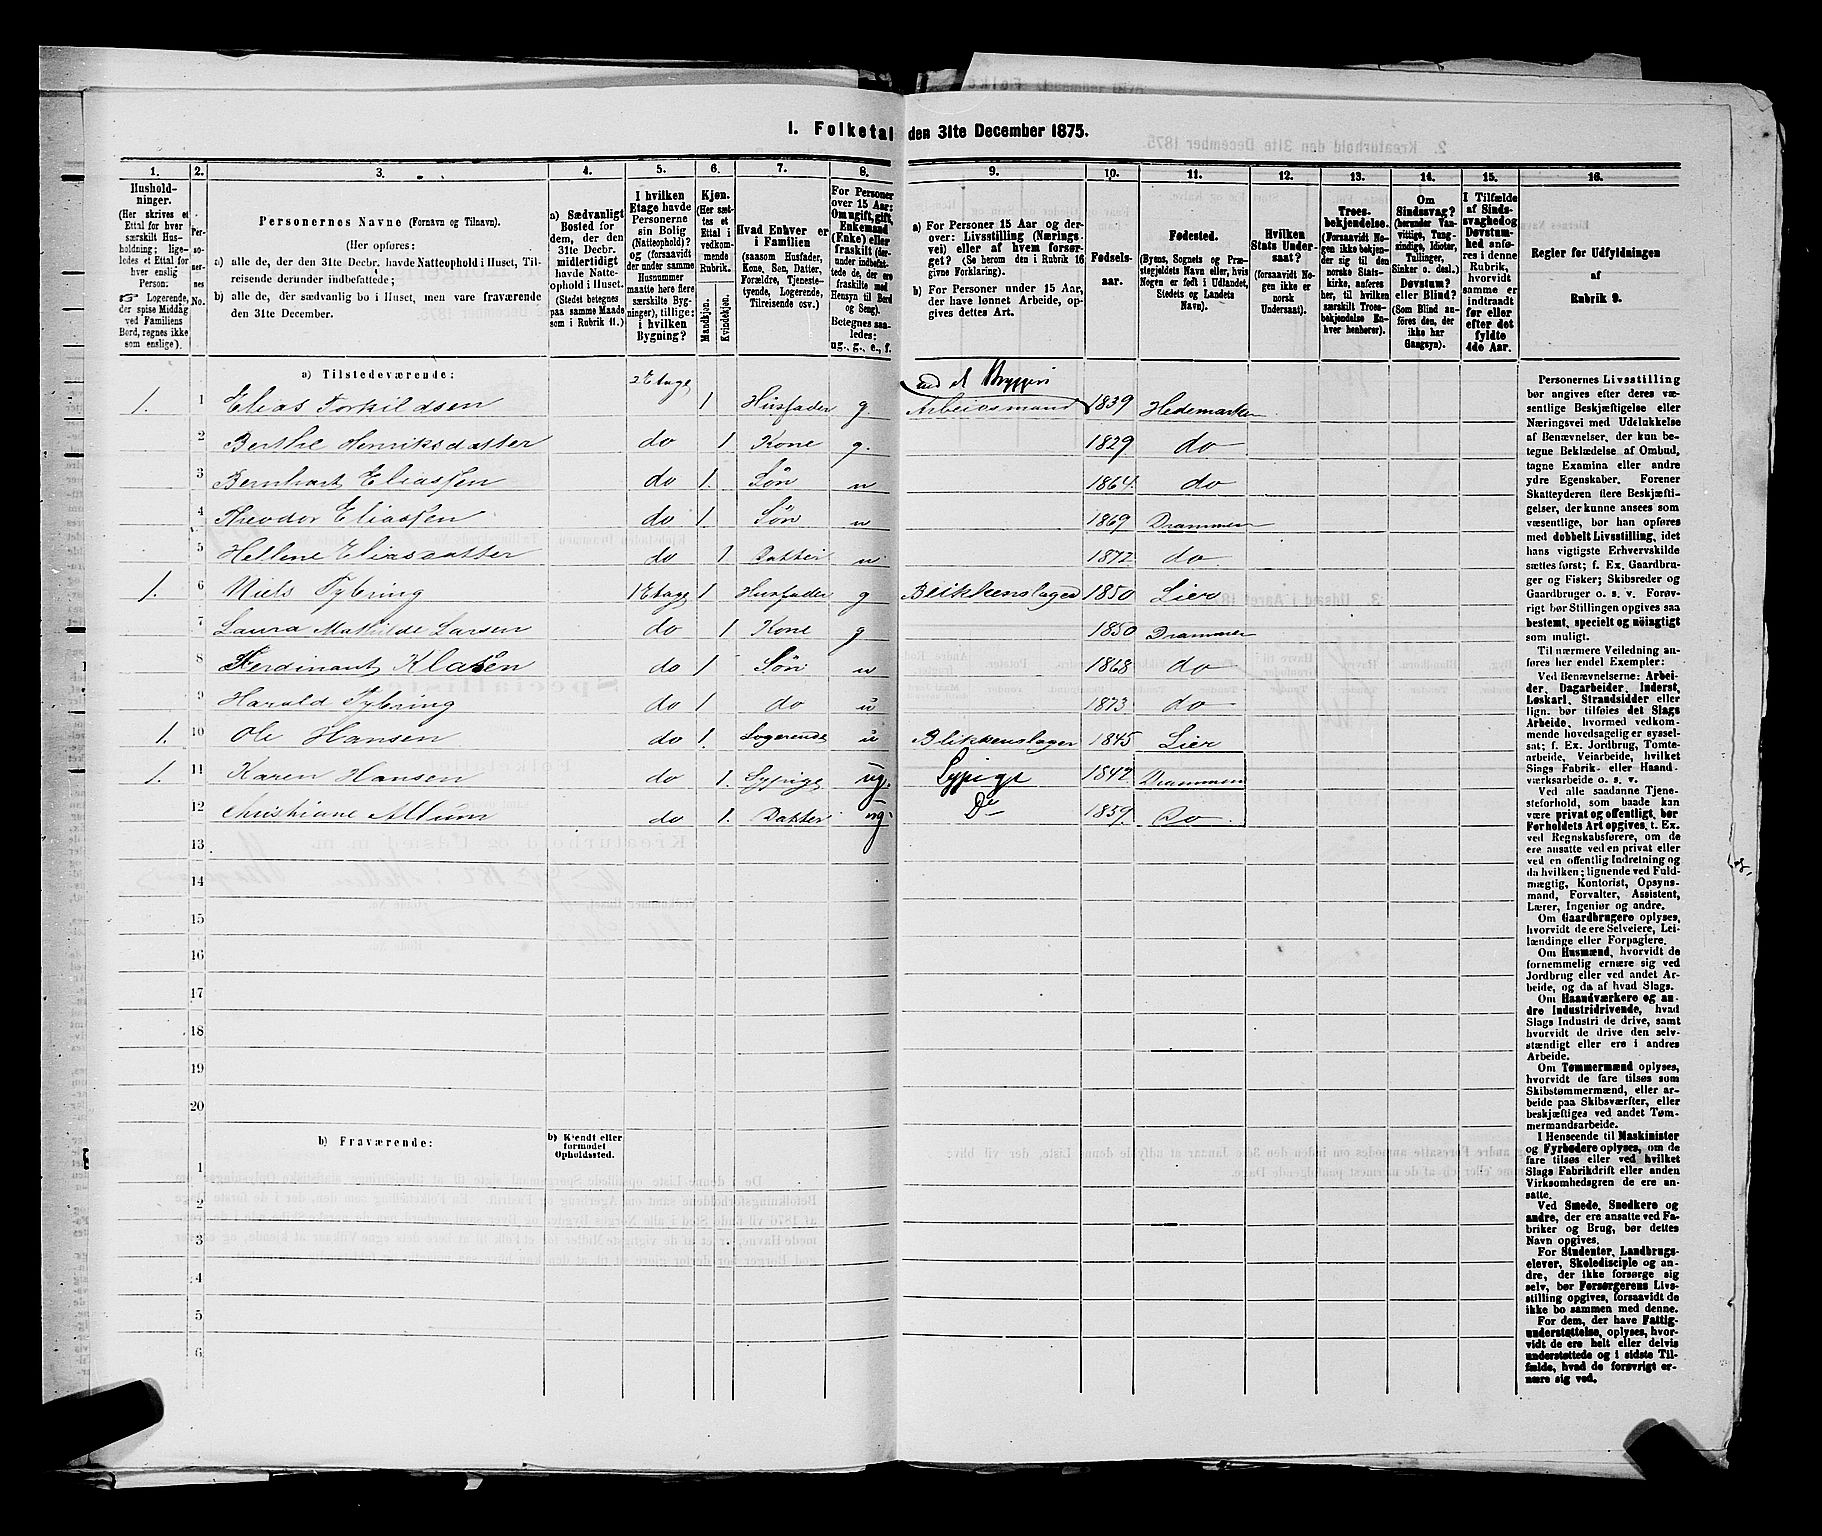 I. Folketal den 31te December 1875.
1. 2. 3. 4. 5. 6. 7. 8. 9. 10. 11. 12. 13. 14. 15. 16.
Hushold-
ninger.
(Her skrives et
Ettal for hver
særskilt Hus-
holdning; lige-
ledes et Ettal
for hver enslig
Person:
☞ Logerende,
der spise Middag
ved Familiens
Bord, regnes ikke
som enslige).
Per-
so-
ner-
nes
No.
Personernes Navne (Fornavn og Tilnavn).
(Her opføres:
a) alle de, der den 31te Decbr. havde Natteophold i Huset, Til-
reisende derunder indbefattede;
b) alle de, der sædvanlig bo i Huset, men vare fraværende
den 31te December.
a) Sædvanligt
Bosted for
dem, der den
31te Decbr.
midlertidigt
havde Natte-
ophold i Huset.
(Stedet betegnes
paa samme Maade
som i Rubrik 11.)
I hvilken
Etage havde
Personerne
sin Bolig
(Natteophold)?
og (forsaavidt
der under samme
Husnummer
maatte høre flere
særskilte Byg-
ninger), tillige:
i hvilken
Bygning?
Kjøn.
(Her sæt-
tes et
Ettal i
vedkom-
mende
Rubrik.
Mandkjøn.
Kvindekjøn.
Hvad Enhver er
i Familien
(saasom Husfader,
Kone, Søn, Datter,
Forældre, Tjeneste-
tyende, Logerende,
Tilreisende osv.)
For Personer
over 15 Aar:
Om ugift, gift,
Enkemand
(Enke) eller
fraskilt (der-
under indbefat-
tede de, der ere
fraskilte med
Hensyn til Bord
og Seng).
Betegnes saa-
ledes:
ug., g., e., f.
a) For Personer 15 Aar og der-
over: Livsstilling (Nærings-
vei) eller af hvem forsør-
get? (Se herom den i Rubrik 16
givne Forklaring).
b) For Personer under 15 Aar,
der have lønnet Arbeide, op-
gives dettes Art.
Fødsels-
aar.
Fødested.
(Byens, Sognets og Præ-
stegjeldets Navn eller, hvis
Nogen er født i Udlandet,
Stedets og Landets
Navn).
Hvilken
Stats Under-
saat?
(forsaavidt No-
gen ikke er
norsk
Undersaat).
Troes-
bekjendelse.
(Forsaavidt No-
gen ikke bekjen-
der sig til den
norske Stats-
kirke, anføres
her, til hvilken
særskilt Troes-
bekjendelse En-
hver henhører).
Om
Sindssvag?
(herunder Van-
vittige, Tung-
sindige, Idioter,
Tullinger,
Sinker o. desl.)
Døvstum?
eller Blind?
(Som Blind an-
føres den, der
ikke har
Gangsyn).
I Tilfælde
af Sinds-
svaghed og
Døvstum-
hed anfø-
res i denne
Rubrik,
hvorvidt
samme er
indtraadt
før eller
efter det
fyldte
4de Aar.
Regler for Udfyldningen
af
Rubrik 9.
a) Tilstedeværende:
ved et Bryggeri
1. 1 Elias Torkildsen 2 Etage 1 Husfader g. Arbeidsmand 1839 Hedemarken
2 Berthe Henriksdatter do 1. Kone g. 1829 do
3 Bernhart Eliassen do 1. Søn u 1864. do
4 Theodor Eliassen do 1. Søn u 1869 Drammen
5 Hellene Eliasdatter do 1 Datter u 1872 do
1. 6 Niels Tybring 1 Etage 1 Husfader g Blikkenslager 1850 Lier
7 Laura Mathilde Larsen do 1 Kone g 1850 Drammen
8 Ferdinant Klasen do 1 Søn u 1868 do
9 Harald Tybring do 1 do u 1873 do
1. 10 Ole Hansen do 1. Logerende u Blikkenslager 1845 Lier
1. 11 Karen Hansen do 1. Sypige ug. Sypige 1842 Drammen
12 Christiane Allum do 1. Datter ug. Do 1859. Do
13
14
15
16
17
18
19
20
b) Fraværende:
b) Kjendt eller
formodet
Opholdssted.
1
2
3
4
5
6
Personernes Livsstilling
bør angives efter deres væ-
sentlige Beskjæftigelse eller
Næringsvei med Udelukkelse
af Benævnelser, der kun be-
tegne Beklædelse af Ombud,
tagne Examina eller andre
ydre Egenskaber. Forener
Skatteyderen flere Beskjæfti-
gelser, der kunne ansees som
væsentlige, bør han opføres
med dobbelt Livsstilling, idet
hans vigtigste Erhvervskilde
sættes først; f. Ex. Gaardbru-
ger og Fisker; Skibsreder og
Gaardbruger o. s. v. Forøv-
rigt bør Stillingen opgives saa
bestemt, specielt og nöiagtigt
som muligt.
Til nærmere Veiledning an-
føres her endel Exempler:
Ved Benævnelserne: Arbei-
der, Dagarbeider, Inderst,
Løskarl, Strandsidder eller
lign. bør tilføies det Slags
Arbeide, hvormed vedkom-
mende hovedsagelig er syssel-
sat; f. Ex. Jordbrug, Tomte-
arbeide, Veiarbeide, hvilket
Slags Fabrik- eller Haand-
værksarbeide o. s. v.
Ved alle saadanne Tjene-
steforhold, som baade kan
være privat og offentlig, bør
Forholdets Art opgives, t. Ex.
ved Regnskabsførere, om de
ere ansatte ved en privat eller
ved en offentlig Indretning og
da hvilken; lignende ved Fuld-
mægtig, Kontorist, Opsyns-
mand, Forvalter, Assistent,
Lærer, Ingeniør og andre.
Om Gaardbrugere oplyses,
hvorvidt de ere Selveiere, Lei-
lændinge eller Forpagtere.
Om Husmænd, hvorvidt de
fornemmelig ernære sig ved
Jordbrug eller ved andet Ar-
beide, og da af hvad Slags.
Om Haandværkere og an-
dre Industridrivende, hvad
Slags Industri de drive, samt
hvorvidt de drive den selv-
stændigt eller ere i andres
Arbeide.
Om Tømmermænd oplyses,
hvorvidt de fare tilsøs som
Skibstømmermænd, eller ar-
beide paa Skibsværfter, eller
beskjæftiges ved andet Tøm-
mermandsarbeide.
I Henseende til Maskinister
og Fyrbødere oplyses, om de
fare tilsøs eller ved hvilket
Slags Fabrikdrift eller anden
Virksomhedsgren de ere an-
satte.
Ved Smede, Snedkere og
andre, der ere ansatte ved Fa-
briker og Brug, bør dettes
Navn opgives.
For Studenter, Landbrugs-
elever, Skoledisciple og an-
dre, der ikke forsørge sig
selv, bør Forsørgerens Livs-
stilling opgives, forsaavidt de
ikke bo sammen med denne.
For dem, der have Fattig-
understøttelse, oplyses, hvor-
vidt de ere helt eller delvis
understøttede og i sidste Til-
fælde, hvad de forøvrigt er-
nære sig ved.